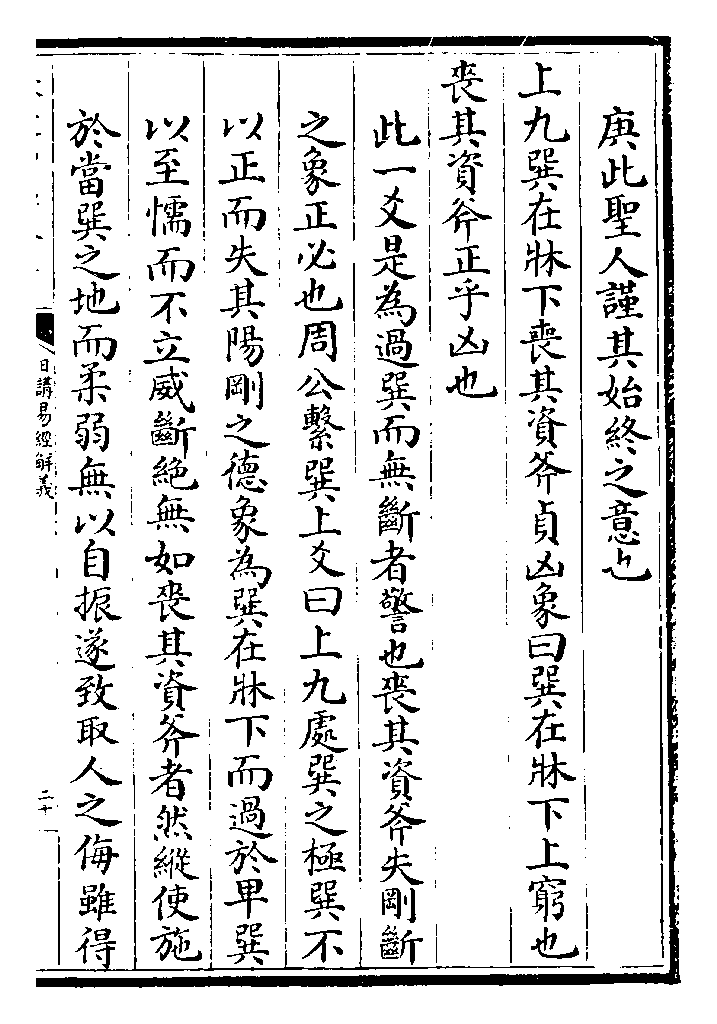 庚此聖人謹其始終之意也
上九巽在牀下喪其資斧貞凶象曰巽在牀下上窮也
喪其資斧正乎凶也
此一爻是為過巽而無斷者警也喪其資斧失剛斷
之象正必也周公繫巽上爻曰上九處巽之極巽不
以正而失其陽剛之德象為巽在牀下而過於卑巽
以至懦而不立威斷絶無如喪其資斧者然縱使施
於當巽之地而柔弱無以自振遂致取人之侮雖得
日講易經解義
二十